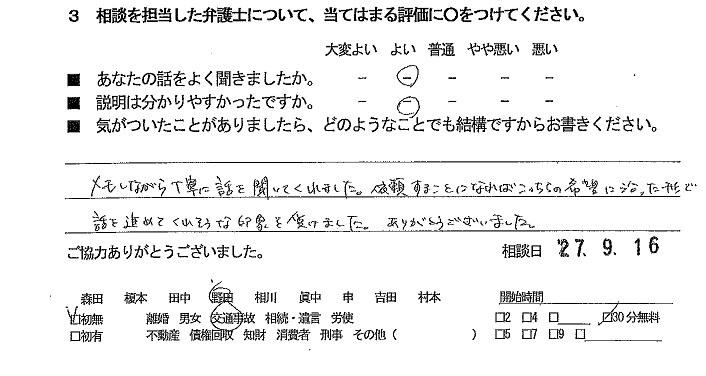 3 相談を担当した弁護士について、当てはまる評価に○をつけてください。
大変よい よい 普通 やや悪い 悪い
■ あなたの話をよく聞きましたか。 － － － － －
■ 説明は分かりやすかったですか。 － － － － －
■ 気がついたことがありましたら、どのようなことでも結構ですからお書きください。
メモしながら丁寧に話を聞いてくれました。依頼することになればこっちの希望に沿った形で
話を進めてくれそうな印象を受けました。ありがとうございました。
ご協力ありがとうございました。 相談日 '27. 9. 16
森田 榎本 田中 野田 相川 眞中 申 吉田 村本 開始時間
□初無 離婚 男女 交通事故 相続・遺言 労使 □2 □4 □ □30分無料
□初有 不動産 債権回収 知財 消費者 刑事 その他 ( ) □5 □7 □9 □